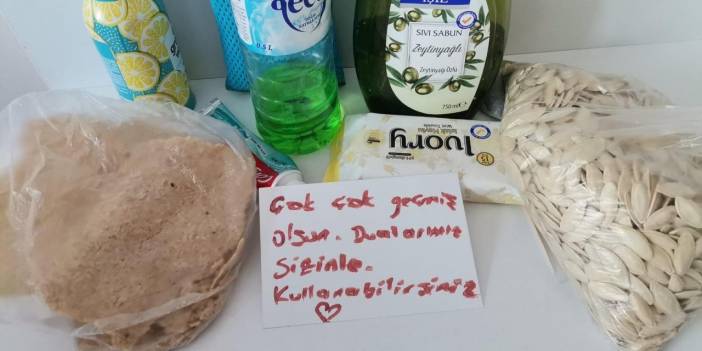 0.5 L
IŞIL
SIVI SABUN
Zeytinyağlı
Zeytinyağı Özlü
750 ml
Ivory
Islak Havlu
Çok çok geçmiş
olsun. Dualarımız
Sizinle.
Kullanabilirsiniz